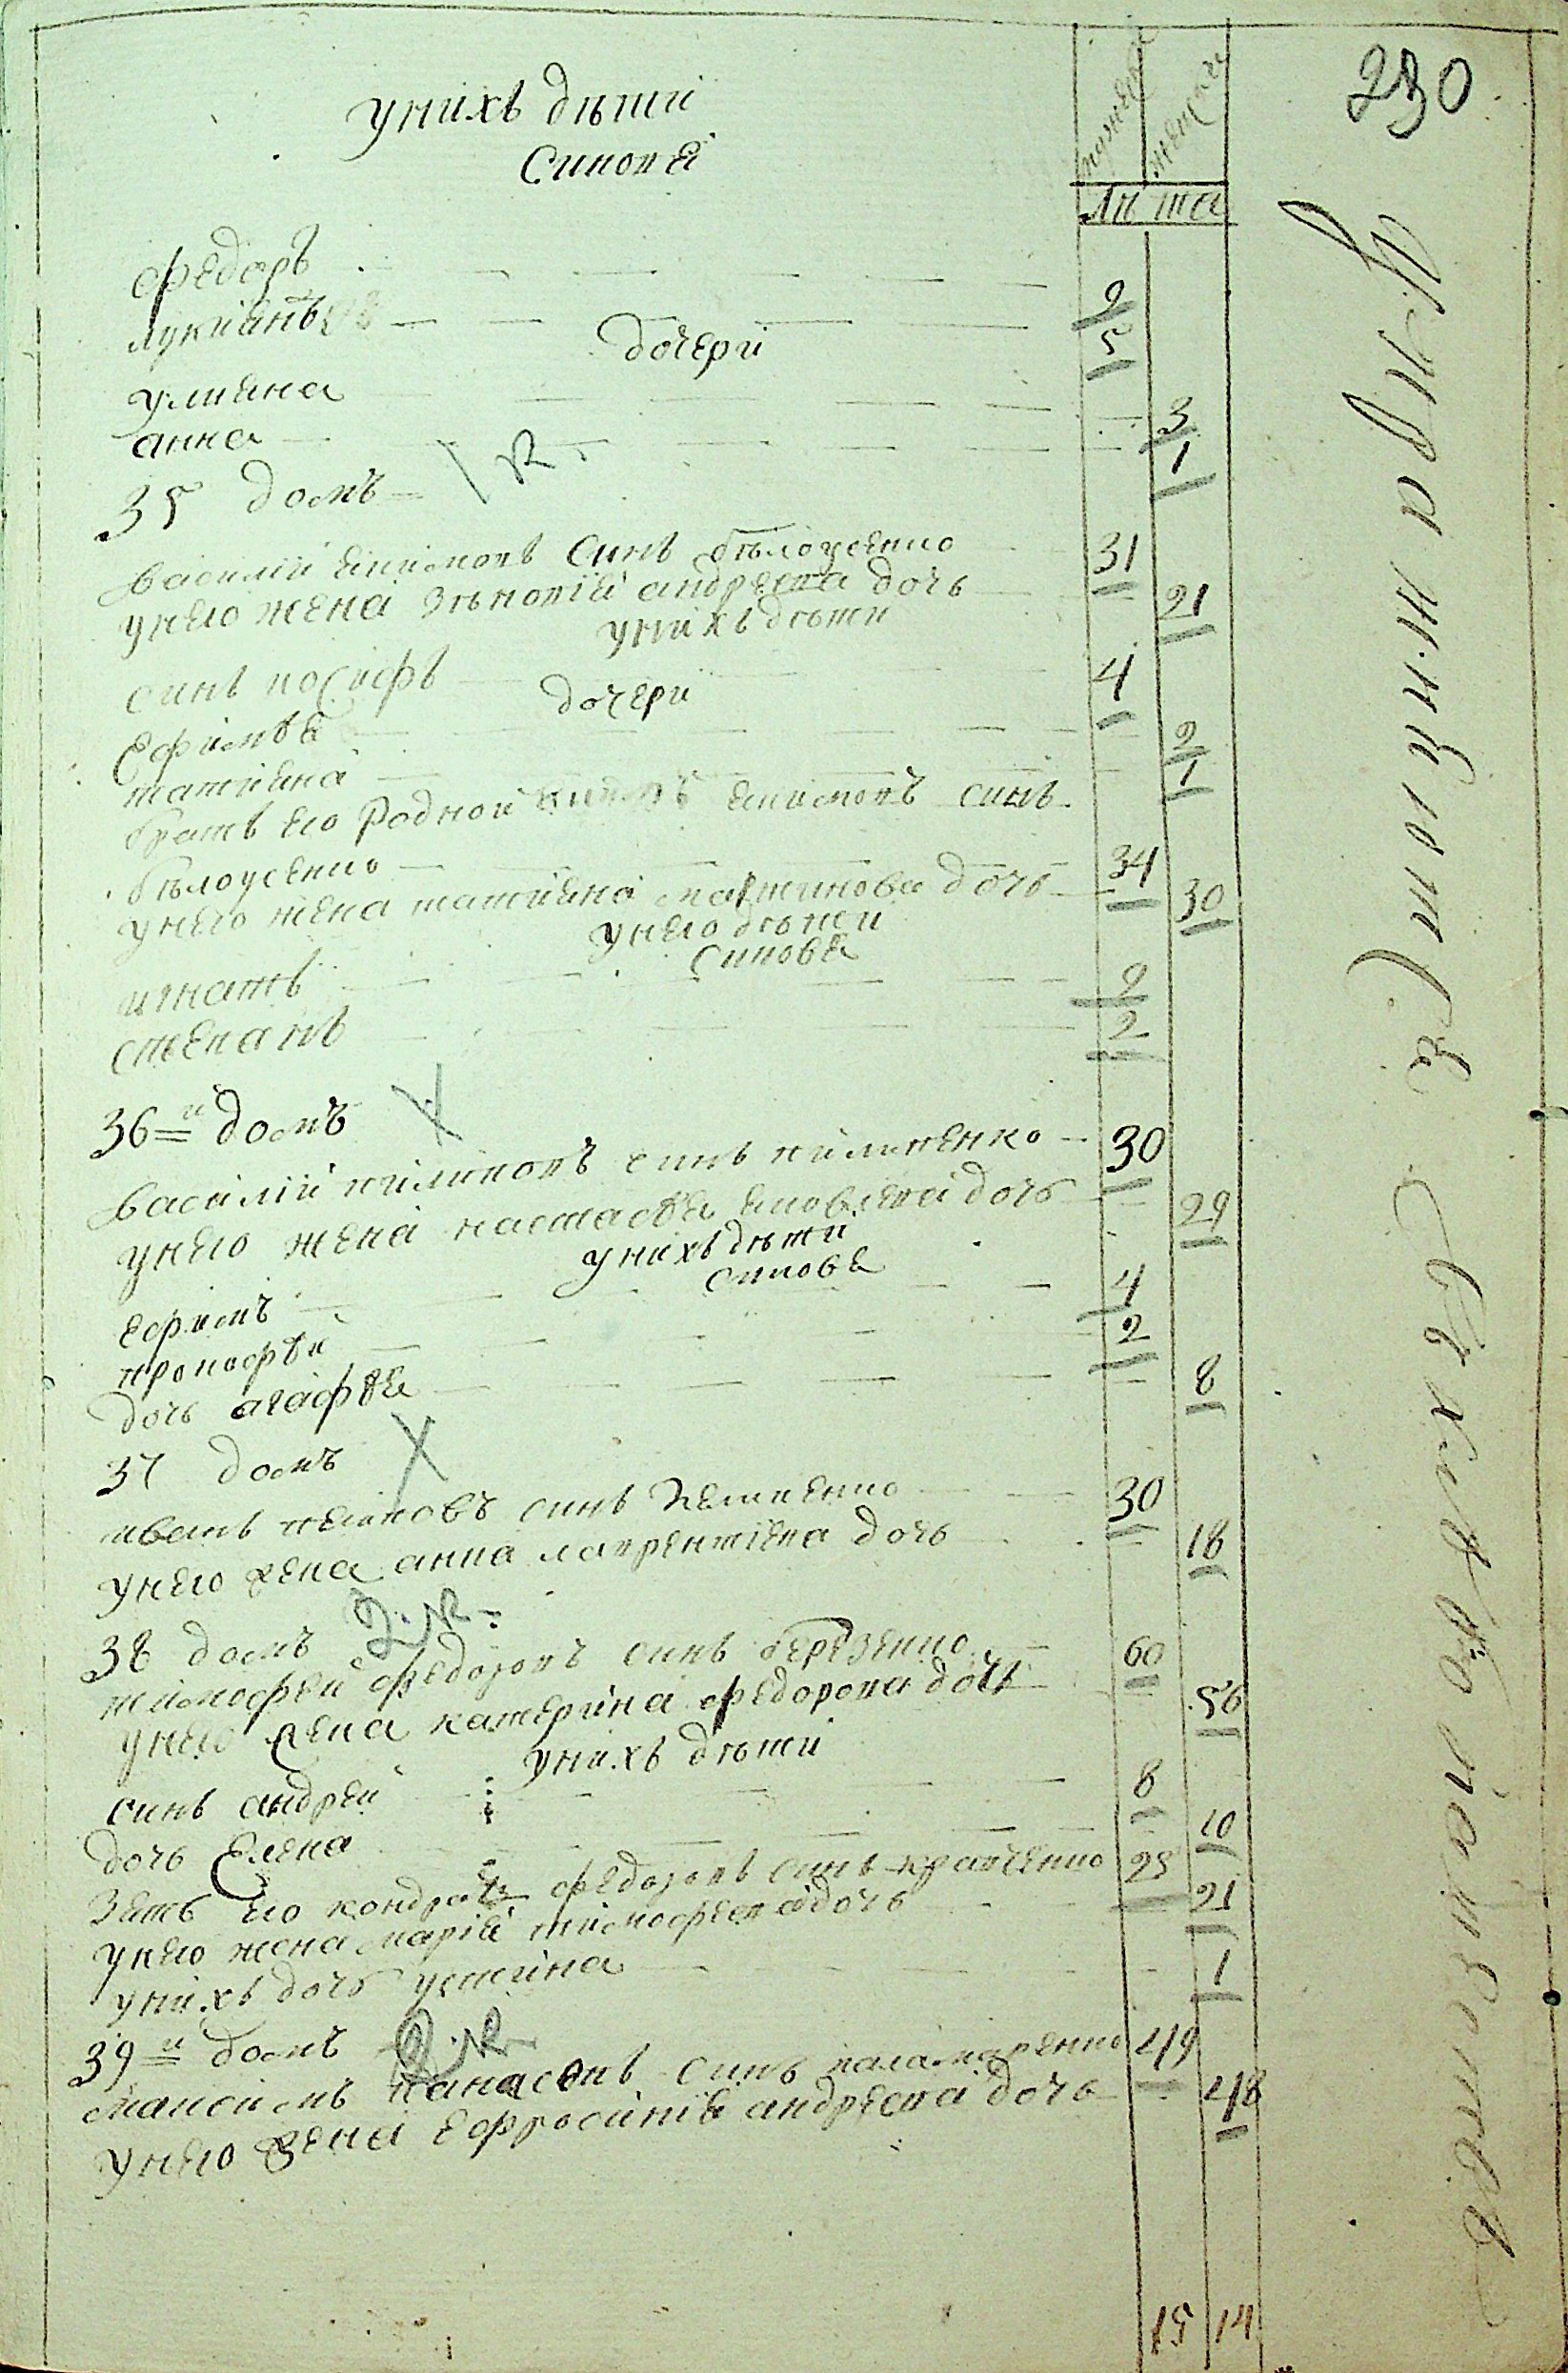 230
мужеск женски
лѣта
унихъ дѣтй
Синовя
федоръ 9
лукиянъ 5
дочери
улияна 3
анна 1
35 домъ
василий якимовъ Синъ бѣлоусенко 31
унего жена зѣновія андреева дочь 21
унихъ дѣти
синъ иосифъ 4
дочери
Ефимѣя 2
татияна 1
братъ его Родной якимовъ синъ
бѣлоусенко 34
унего жена татияна мартинова дочь 30
унего дѣтей
Синовя
игнатъ 9
степанъ 2
36й домъ
василій пилиповъ синъ пилипенко 30
унего жена настасъя яковлева дочь 29
унихъ дѣти
синовя
ефимъ 4
прокофѣй 2
дочь агафѣя 8
37 домъ
иванъ синъ 30
унего жена анна лаврентіева дочь 18
38 домъ
тимофей федоровъ синъ березенко 60
унего жена катерина федорова дочь 56
унихъ дѣти
синъ андрей 8
дочь Елена 10
зять его кондратъ федоровъ синъ кравченко 25
унего жена марія тимофеева дочь 21
унихъ дочь устина 1
39й домъ
максимъ панасовъ синъ паламаренко 49
унего жена ефросинія андреева дочь 48
15 14